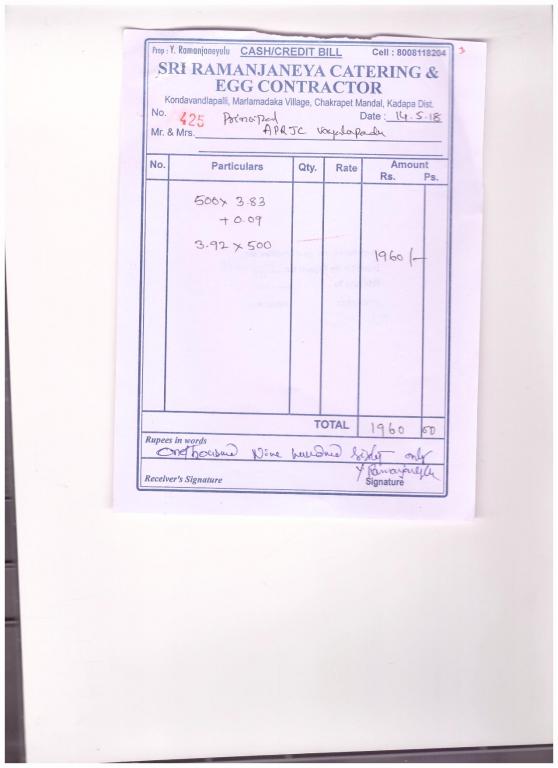 Prop : Y. Ramanjaneyulu CASH/CREDIT BILL Cell : 8008118204 3
SRI RAMANJANEYA CATERING &
EGG CONTRACTOR
Kondavandlapalli, Marlamadaka Village, Chakrapet Mandal, Kadapa Dist.
No. 425 Principal Date : 14.5.18
Mr. & Mrs. APRJC
No. Particulars Qty. Rate Amount
Rs. Ps.
500 x 3.83
+ 0.09
3.92 x 500
1960/-
TOTAL 1960 00
Rupees in words
One thousand Nine hundred Sixty only
Y Ramanjaneyulu
Receiver's Signature Signature